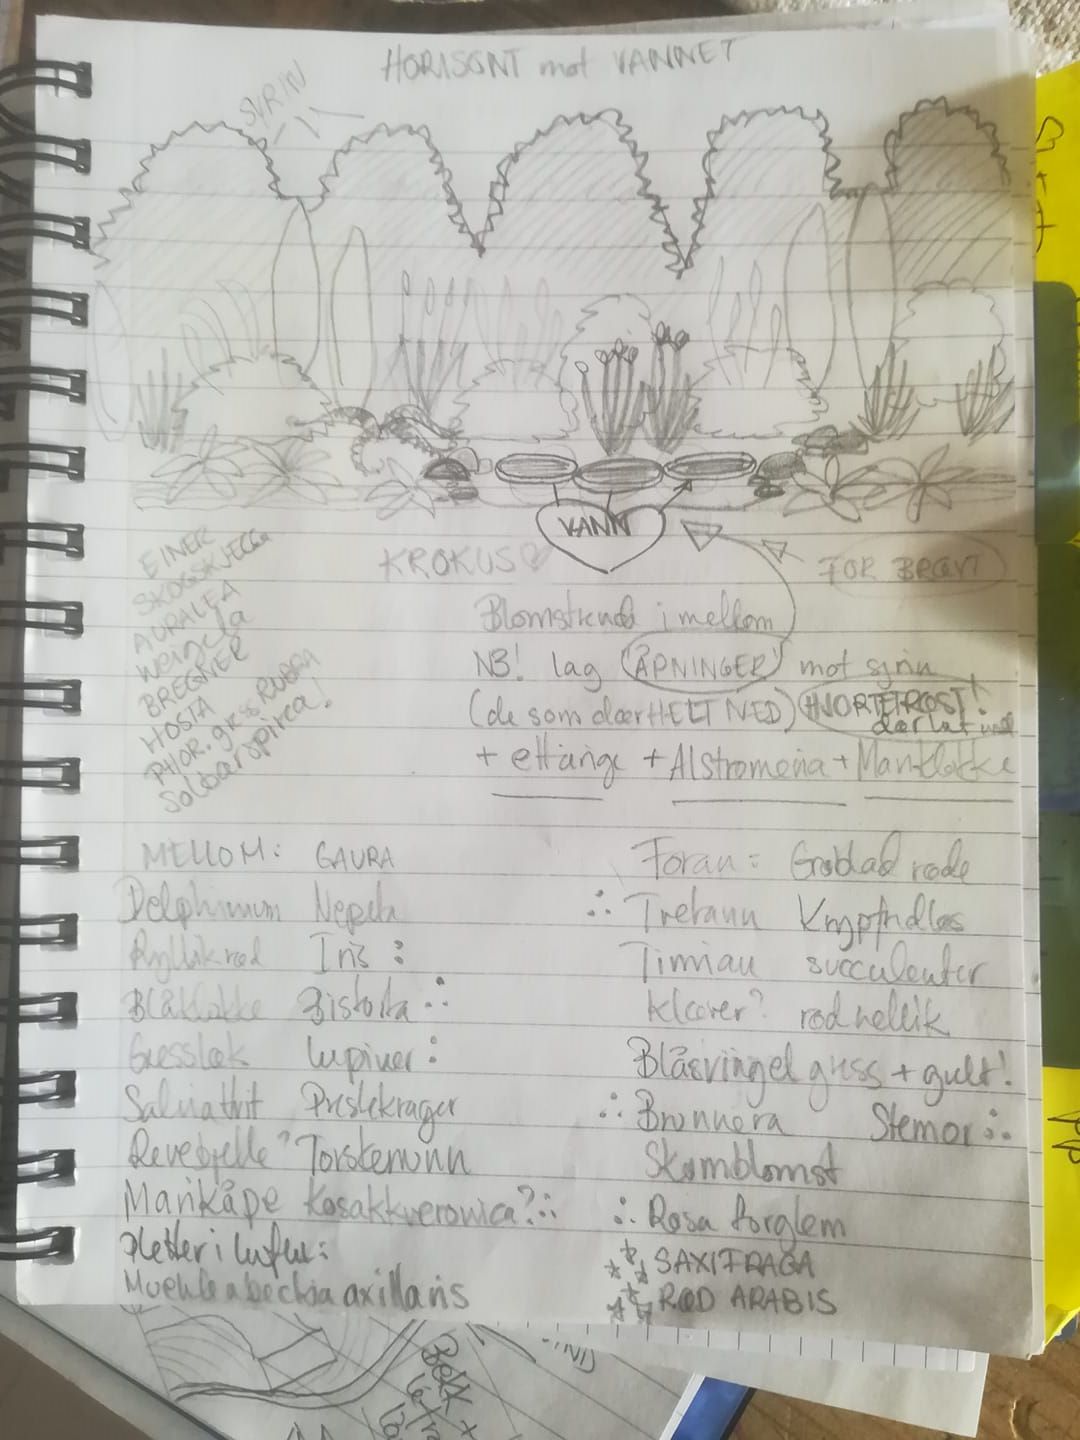 HORISONT mot VANNET
SYRIN
VANN
KROKUS
FOR BREDT
EINER
SKOGSKJEGG
AURALEA
Weigela
BREGNER
HOSTA
PHOR. gress RUBRA
Solbærspirea!
Blomstrende i mellom
NB! lag ÅPNINGER mot syrin
(de som dør HELT NED) HJORTETRØST!
+ ettårige + Alstromeria + Mariklokke
MELLOM: GAURA
Delphinium Nepeta
Ryllik rød Iris :
Blåklokke Bistorta ∴
Gressløk Lupiner :
Salvia hvit Prestekrager
Revebjelle? Torskemunn
Marikåpe Kosakkveronica? ∴
Pletter i luften:
Muehlenbeckia axillaris
Foran = Groblad røde
∴ Tretann Krypfredløs
Timian succulenter
Kløver? rød nellik
Blåsvingel gress + gult!
∴ Brunnera Stemor ∴
Skumblomst
∴ Rosa forglem
SAXIFRAGA
RØD ARABIS